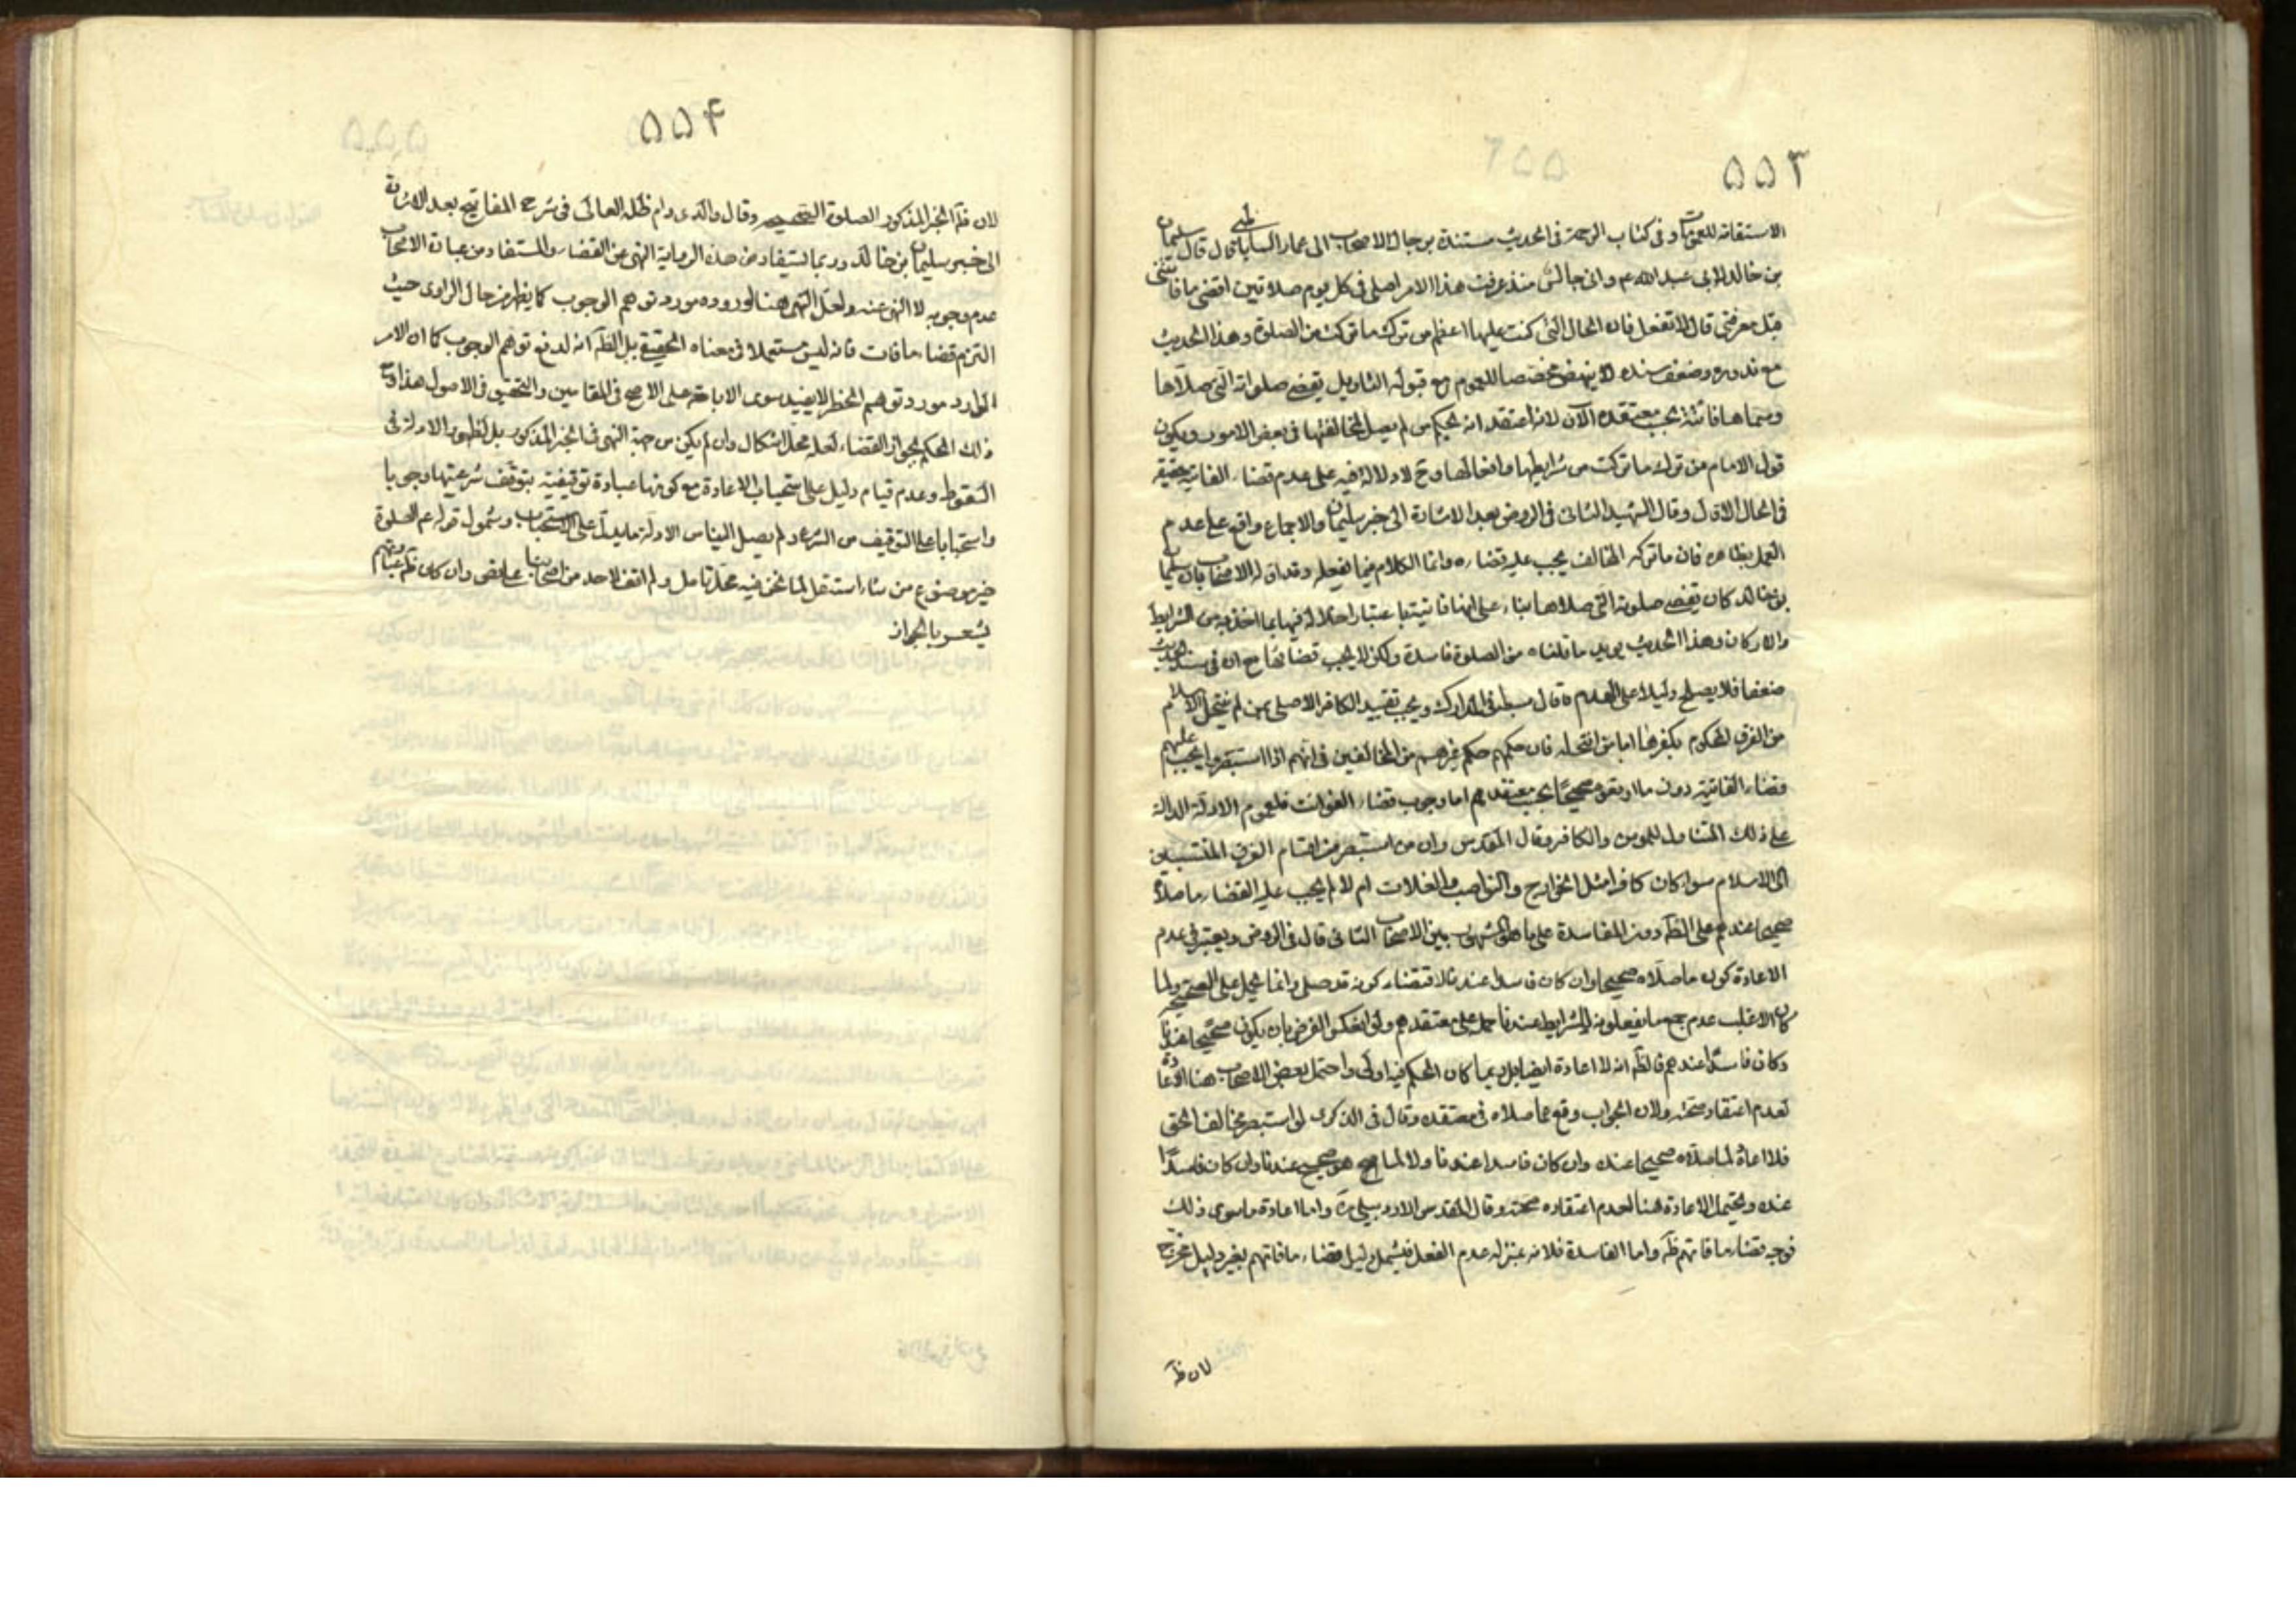 ٥٥٣
الاستفاته للعمومات وفى كتاب الرجال فى الحديث مستندة برجال الاصحاب الى عمار الساباطى قال قال سليمان
بن خالد لابى عبد الله ع م وانى جالس منذ عرفت هذا الامر اصلى فى كل يوم صلاتين اقضى ما فاتنى
قبل معرفتى قال لا تفعل فان الحال التى كنت عليها اعظم من ترك ما تركت من الصلوة وهذا الحديث
مع ندوره وضعف سنده لا ينهض مخصصا للعموم مع قبوله التاويل يقضى صلواته التى صلاها
وسماها فائتة بحسب معتقده الآن لانه اعتقد انه بحكم من لم يصل لمخالفتها فى بعض الامور ويكون
قول الامام من ترك ما تركت من شرايطها وافعالها وح لا دلالة فيه على عدم قضاء الفايتة حقيقة
فى الحال الاول وقال الشهيد الثانى فى الروض بعد الاشارة الى خبر سليمان والاجماع واقع على عدم
العمل بظاهره فان ما تركه المخالف يجب عليه قضاؤه وانما الكلام فيما يفعله وقد اوله الاصحاب بان سليمان
بن خالد كان يقضى صلوته التى صلاها بناء على انها فايتة باعتبار اخلاله فيها بما اخذ فيه من الشرايط
والاركان وهذا الحديث يويد ما قلناه من الصلوة فاسدة ولكن لا يجب قضائها مع ان فى سند الحديث
ضعفا فلا يصلح دليلا على العدم وقال سبطه فى المدارك ويجب تقييد الكافر الاصلى بمن لم ينتحل الاسلام
من الفرق المحكوم بكفرها اما من انتحله فان حكمهم حكم غيرهم من المخالفين فى انهم اذا استبصروا يجب عليهم
قضاء الفائتة دون ما اوقعوه صحيحا بحسب معتقدهم اما وجوب قضاء الفوائت فلعموم الادلة الدالة
على ذلك المتناول للمومن والكافر وقال المقدس وان من استبصر من اقسام الفرق المنتسبين
الى الاسلام سواء كان كافرا مثل الخوارج والنواصب والغلات ام لا لم يجب عليه القضاء ما صلاه
صحيحا عندهم على الظ دون الفاسدة على ما هو المشهور بين الاصحاب الثانى قال فى الروض ويعتبر فى عدم
الاعادة كون ما صلاه صحيحا وان كان فاسدا عندنا لاقتضاء كونه قد صلى وانما يحمل على الصحيح ولما
كان الاغلب عدم جمع ما يفعلونه الشرايط عندنا حمل على معتقدهم ولو انعكس الفرض بان يكون صحيحا عندنا
وكان فاسدا عندهم فالظ انه لا اعادة ايضا بل ربما كان الحكم فيه اولى واحتمل بعض الاصحاب هنا الاعادة
لعدم اعتقاد صحته ولان الجواب وقع عما صلاه فى معتقده وقال فى الذكرى لو استبصر مخالف الحق
فلا اعادة لما صلاه صحيحا عنده وان كان فاسدا عندنا ولا لما هو صحيح عندنا وان كان فاسدا
عنده ويحتمل الاعادة هنا لعدم اعتقاده صحته وقال المقدس الاردبيلى ره واما اعادة ما سوى ذلك
فوجه قضاء ما فاتهم ظ واما الفاسدة فلانه بمنزله عدم الفعل فيشمل دليل قضاء ما فاتهم بغير دليل مخرج
لان ظ
٥٥۴
لان ظ الخبر المذكور الصلوة الصحيحه وقال والدى دام ظله العالى فى شرح المفاتيح بعد الاشارة
الى خبر سليمان بن خالد وربما يستفاد من هذه الرواية النهى عن القضاء والمستفاد من عبارة الاصحاب
عدم وجوبه لا النهى عنه ولعل النهى هنا لوروده مورد توهم الوجوب كما يظهر من حال الراوى حيث
التزم قضاء ما فات فانه ليس مستعملا فى معناه الحقيقى بل الظ انه لدفع توهم الوجوب كما ان الامر
الوارد مورد توهم الحظر لا يفيد سوى الاباحة على الاصح فى المقامين والتحقيق فى الاصول هذا وح
ذلك الحكم بجواز القضاء لعله محل اشكال وان لم يكن من جهة النهى فى الخبر المذكور بل لظهور الادلة فى
السقوط وعدم قيام دليل على استحباب الاعادة مع كونها عبادة توقيفية يتوقف شرعيتها وجوبا
واستحبابا على التوقيف من الشرع ولم يصل الينا من الادلة ما يدل على الاستحباب وشمول قوله عم الصلوة
خير موضوع من شاء استقل لما نحن فيه محل تامل ولم اقف لاحد من اصحابنا على نص وان كان ظ عبارتهم
يشعر بالجواز